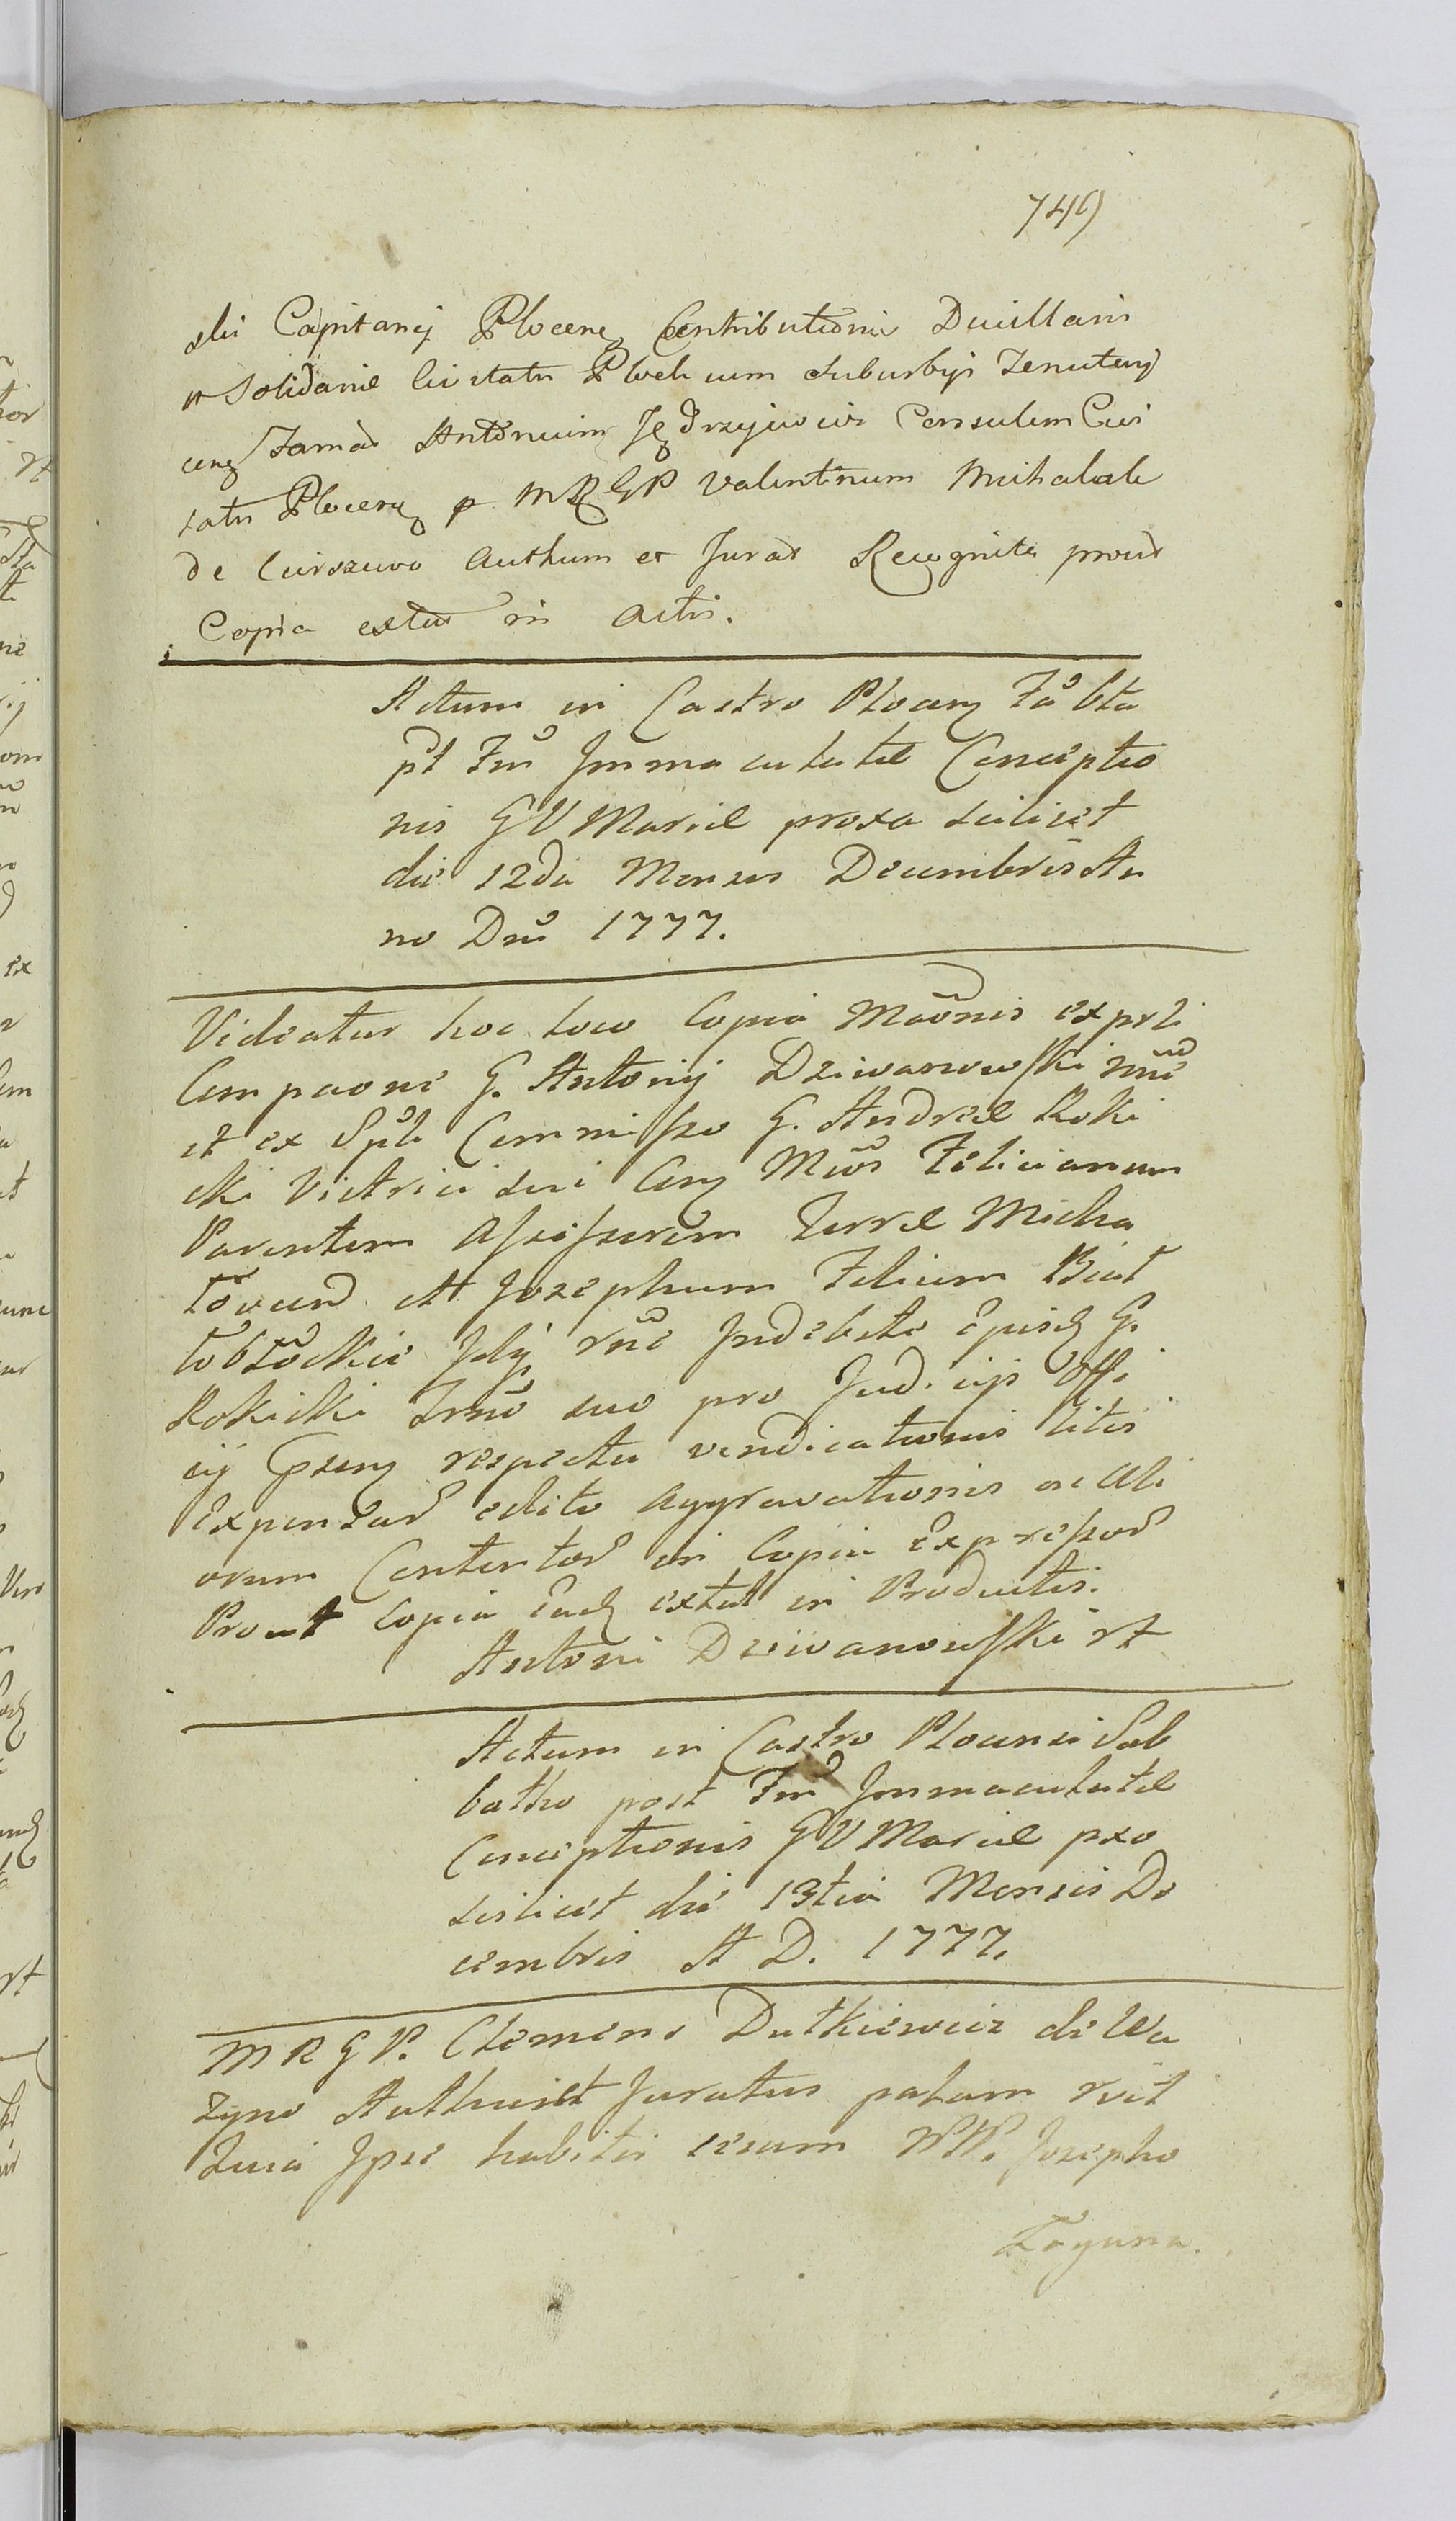 749
ski Capitanej Plocen Contributionis Duillaris
et Solidariae Civitatis Plock cum Suburbys Tenuteny
cong famat Antonium Jędrzejewicz Consulem Civi
tatis Plocen p MRGP Valentinum Michalak
de Ciurszewo Authum et Jurat Recognita prout
Copia extat in Actis.
Actum in Castro Plocen Fa 6ta
pt Fm Immaculatae Conceptio
nis GV Mariae proxa scilicet
die 12da Mensis Decembris An
no Dni 1777.
Videatur hoc loco Copia Maonis ex prli
Compaone G. Antonij Dziwanowski nne
et ex Spli Commisso G. Andreae Roki
cki Victrici sui Con Mcos Felicianum
Parentem Assessorem Terrae Micha
lovien et Josephum Filium Biał
łobłockie
Rokicki Trno suo pro Judicijs Offi
cij Psens respectu vendicationis litis
Expensar edito Aggravationis ac Ali
orum Contentor in Copia Expressor
Prout Copia Ead extat in Productis.
Antoni Dziwanowski rt
Actum in Castro Plocensi Sab
batho post Fm Immaculatae
Conceptionis GV Mariae pxo
scilicet die 13tia Mensis De
cembris A D. 1777.
MRGP. Clemens Dutkiewicz de Wa
zyno Authent Juratus palam rvit
Quia Ipse habitis secum NN. Josepho
Łaguna.